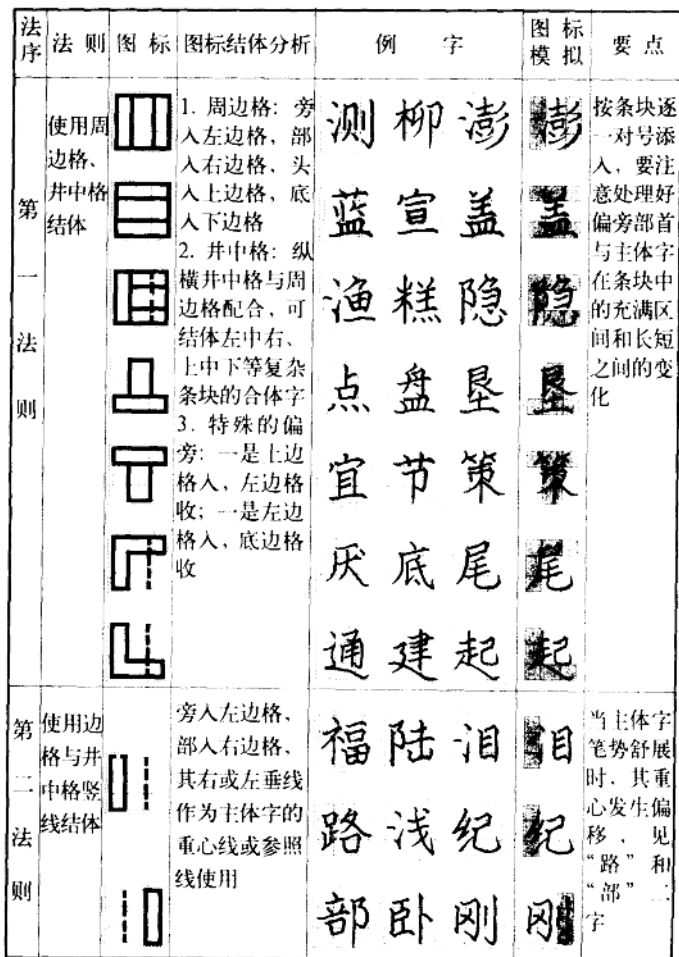 法序 法则 图标 图标结体分析 例字 图标模拟 要点
第一法则
使用周
边格、
井中格
结体
1. 周边格：旁
入左边格，部
入右边格，头
入上边格，底
入下边格
2. 井中格：纵
横井中格与周
边格配合，可
结体左中右、
上中下等复杂
条块的合体字
3. 特殊的偏
旁：一是上边
格入，左边格
收；一是左边
格入，底边格
收
测 柳 澎 澎
蓝 宣 盖 盖
渔 糕 隐 隐
点 盘 垦 垦
宜 节 策 策
厌 底 尾 尾
通 建 起 起
按条块逐
一对号添
入，要注
意处理好
偏旁部首
与主体字
在条块中
的充满区
间和长短
之间的变
化
第二法则
使用边
格与井
中格竖
线结体
旁入左边格、
部入右边格、
其右或左垂线
作为主体字的
重心线或参照
线使用
福 陆 泪 泪
路 浅 纪 纪
部 卧 刚 刚
当主体字
笔势舒展
时，其重
心发生偏
移，见
“路”和
“部”二
字